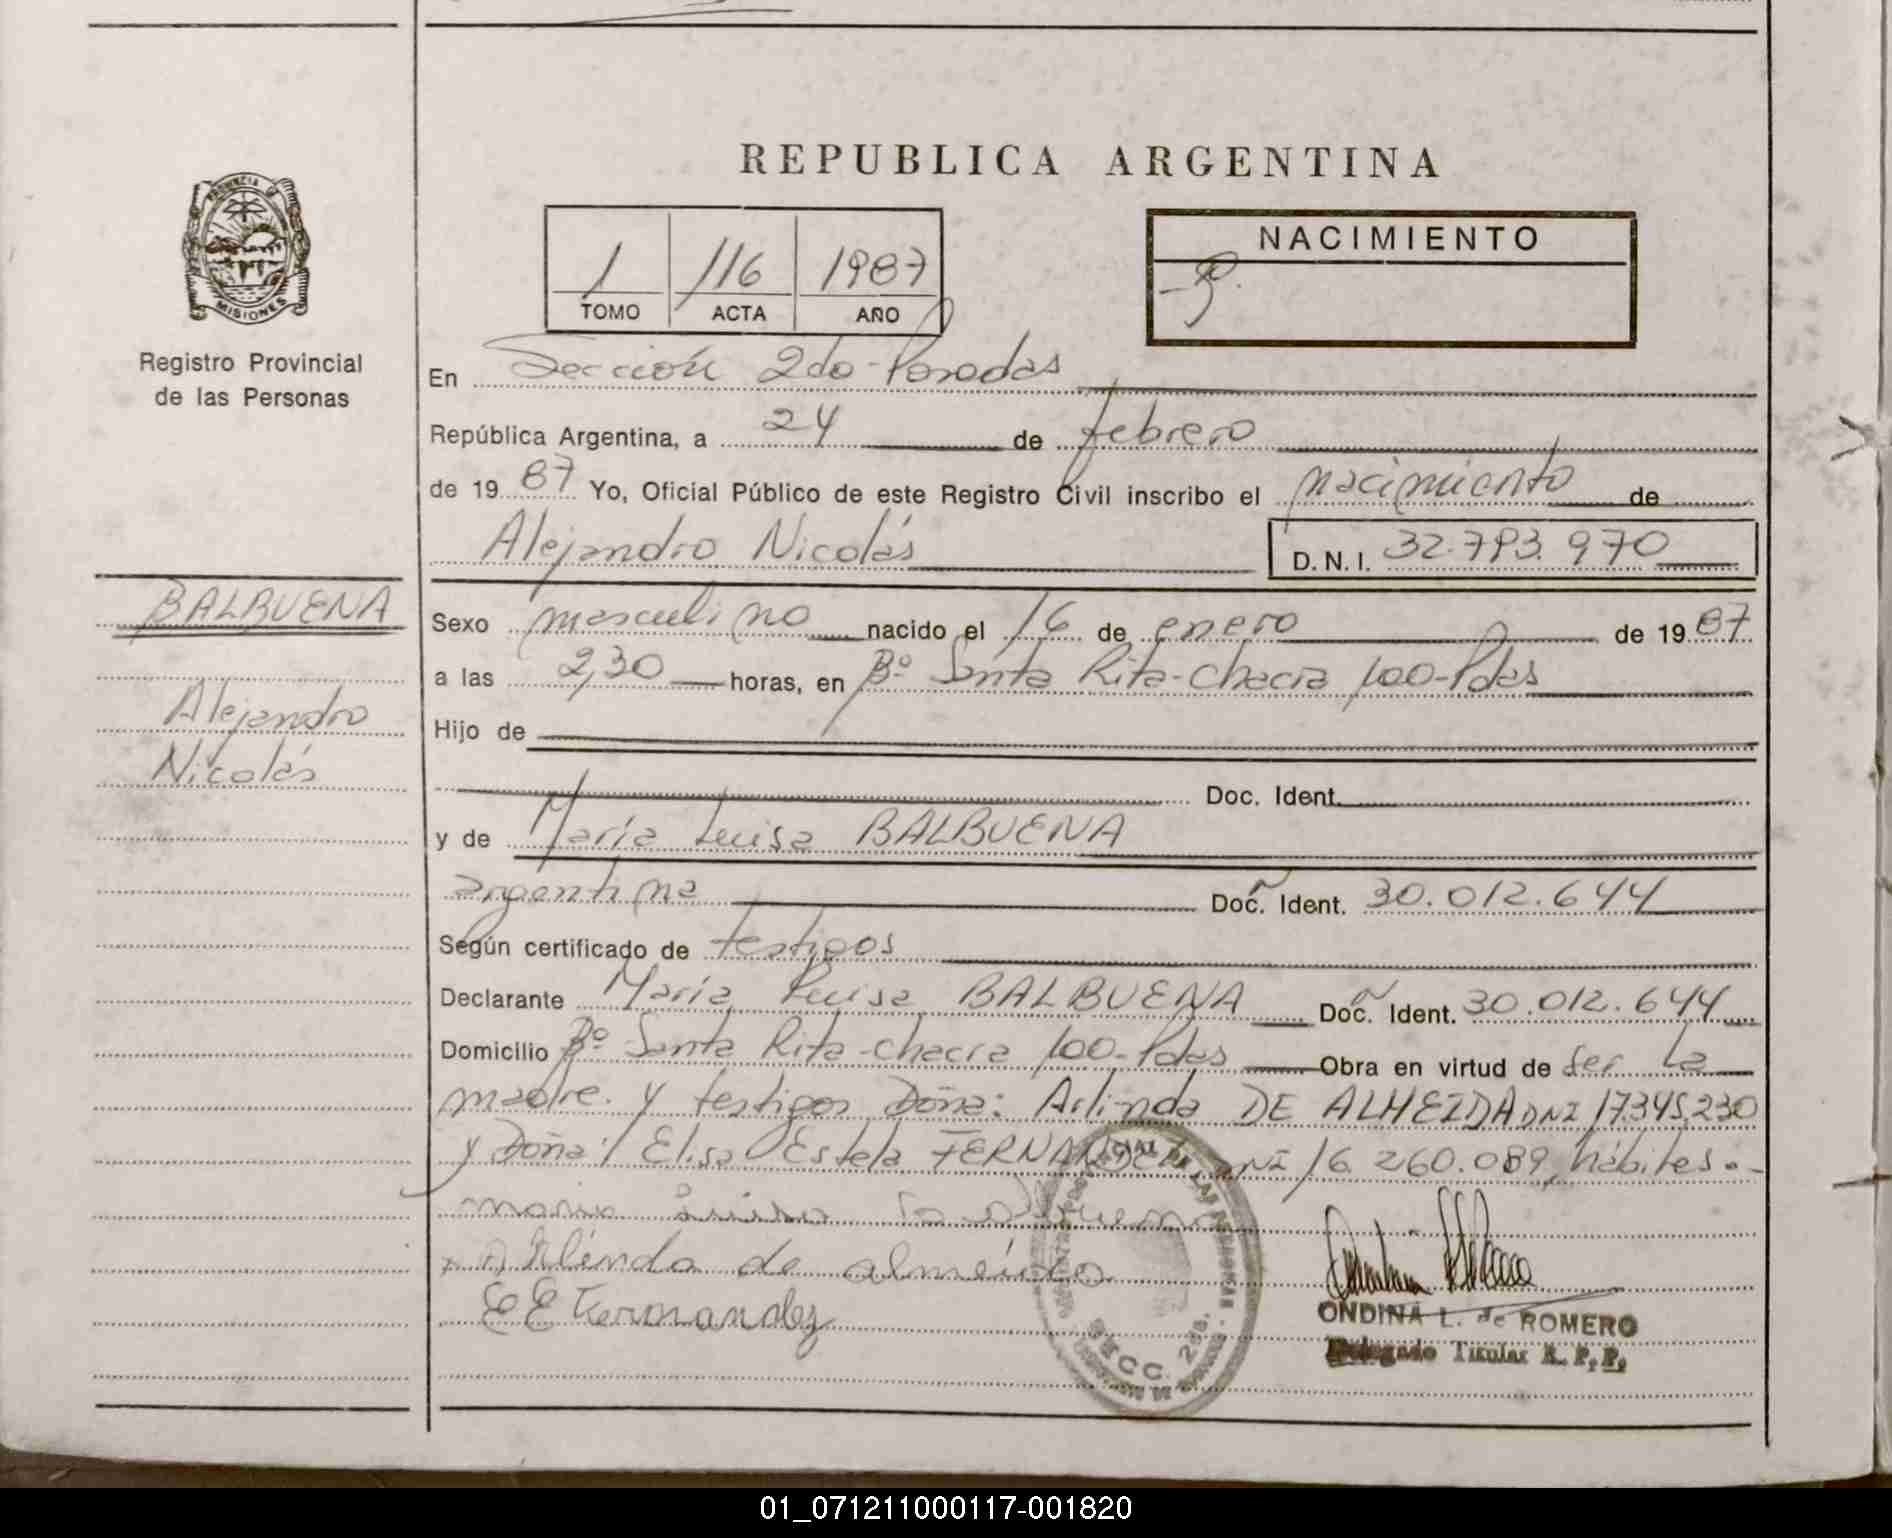 REPUBLICA ARGENTINA
PROVINCIA DE
MISIONES
Registro Provincial
de las Personas
1 116 1987
TOMO ACTA AÑO
NACIMIENTO
En Sección 2do-Posadas
República Argentina, a 24 de febrero
de 1987 Yo, Oficial Público de este Registro Civil inscribo el nacimiento de
Alejandro Nicolás D.N.I. 32.793.970
BALBUENA
Alejandro
Nicolás
Sexo masculino nacido el 16 de enero de 1987
a las 2,30 horas, en Bº Santa Rita-Chacra 100-Pdas
Hijo de
Doc. Ident.
y de María Luisa BALBUENA
argentina Doc. Ident. 30.012.644
Según certificado de testigos
Declarante María Luisa BALBUENA Doc. Ident. 30.012.644
Domicilio Bº Santa Rita-Chacra 100-Pdas Obra en virtud de ser la
madre. y testigos Doña: Arlinda DE ALMEIDA DNI 17.345.230
y Doña: Elisa Estela FERNANDEZ DNI 16.260.089, hábiles.-
maria Luisa Balbuena
x Arlinda de almeida
EE Fernandez
SECC. 2da.
ONDINA L. de ROMERO
Delegado Titular R. P. P.
01_071211000117-001820